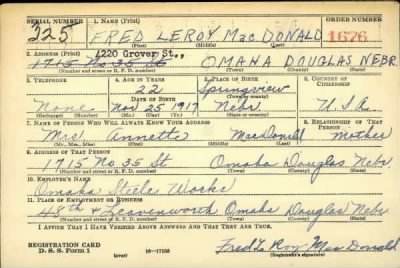 SERIAL NUMBER 1. NAME (Print) ORDER NUMBER
325 FRED LEROY MacDONALD 1676
(First) (Middle) (Last)
2. ADDRESS (Print) 4220 Grover St.,
1715 No 35 St OMAHA DOUGLAS NEBR.
(Number and street or R. F. D. number) (Town) (County) (State)
3. TELEPHONE 4. AGE IN YEARS 5. PLACE OF BIRTH 6. COUNTRY OF CITIZENSHIP
22 Springview
(Town or county)
DATE OF BIRTH
None Nov 25 1917 Nebr. U.S.A.
(Exchange) (Number) (Mo.) (Day) (Yr.) (State or country)
7. NAME OF PERSON WHO WILL ALWAYS KNOW YOUR ADDRESS 8. RELATIONSHIP OF THAT PERSON
Mrs. Annette MacDonald Mother
(Mr., Mrs., Miss) (First) (Middle) (Last)
9. ADDRESS OF THAT PERSON
1715 No 35 St Omaha Douglas Nebr
(Number and street or R. F. D. number) (Town) (County) (State)
10. EMPLOYER'S NAME
Omaha Steele Works
11. PLACE OF EMPLOYMENT OR BUSINESS
48th & Leavenworth Omaha Douglas Nebr
(Number and street or R. F. D. number) (Town) (County) (State)
I AFFIRM THAT I HAVE VERIFIED ABOVE ANSWERS AND THAT THEY ARE TRUE.
REGISTRATION CARD
D. S. S. Form 1 (over) 16—17105 Fred Le Roy MacDonald
(Registrant's signature)